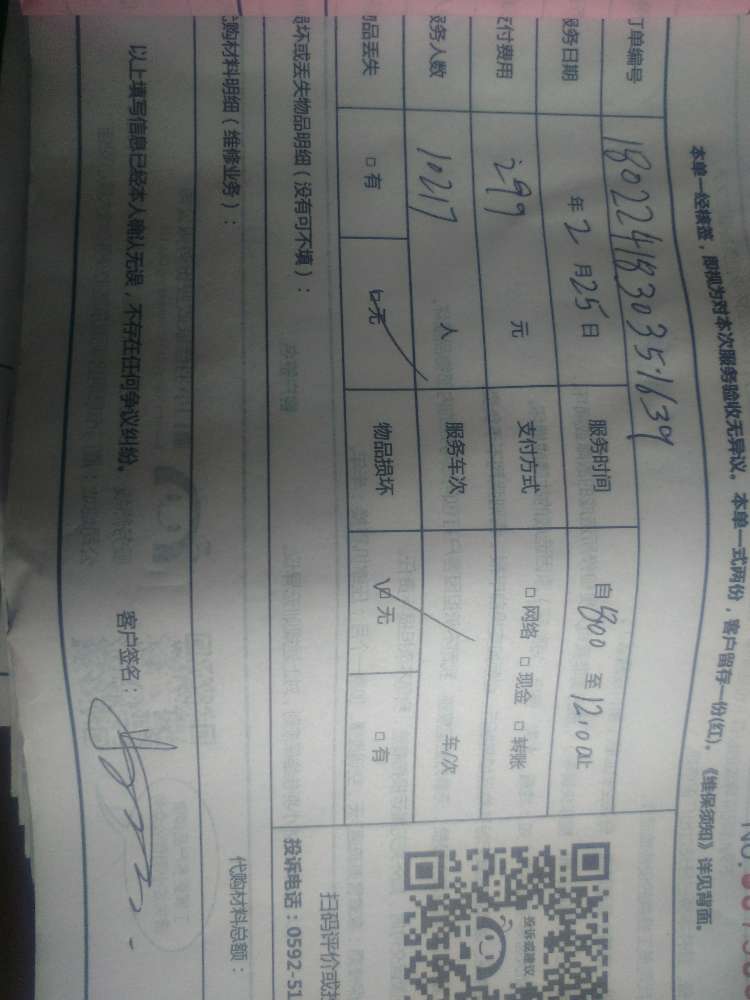 本单一经核签，即视为对本次服务验收无异议。本单一式两份，客户留存一份(红)。《维保须知》详见背面。
订单编号 1802241830351639
服务日期 年 2 月 25 日 服务时间 自 800 至 12:00止
支付费用 299 元 支付方式 □ 网络 □ 现金 □ 转账
服务人数 10217 人 服务车次 车/次
物品丢失 □ 有 □ 无 物品损坏 □ 无 □ 有
损坏或丢失物品明细（没有可不填）：
代购材料明细（维修业务）：
代购材料总额：
以上填写信息已经本人确认无误，不存在任何争议纠纷。 客户签名：
投诉或建议
扫码评价或
投诉电话：0592-51